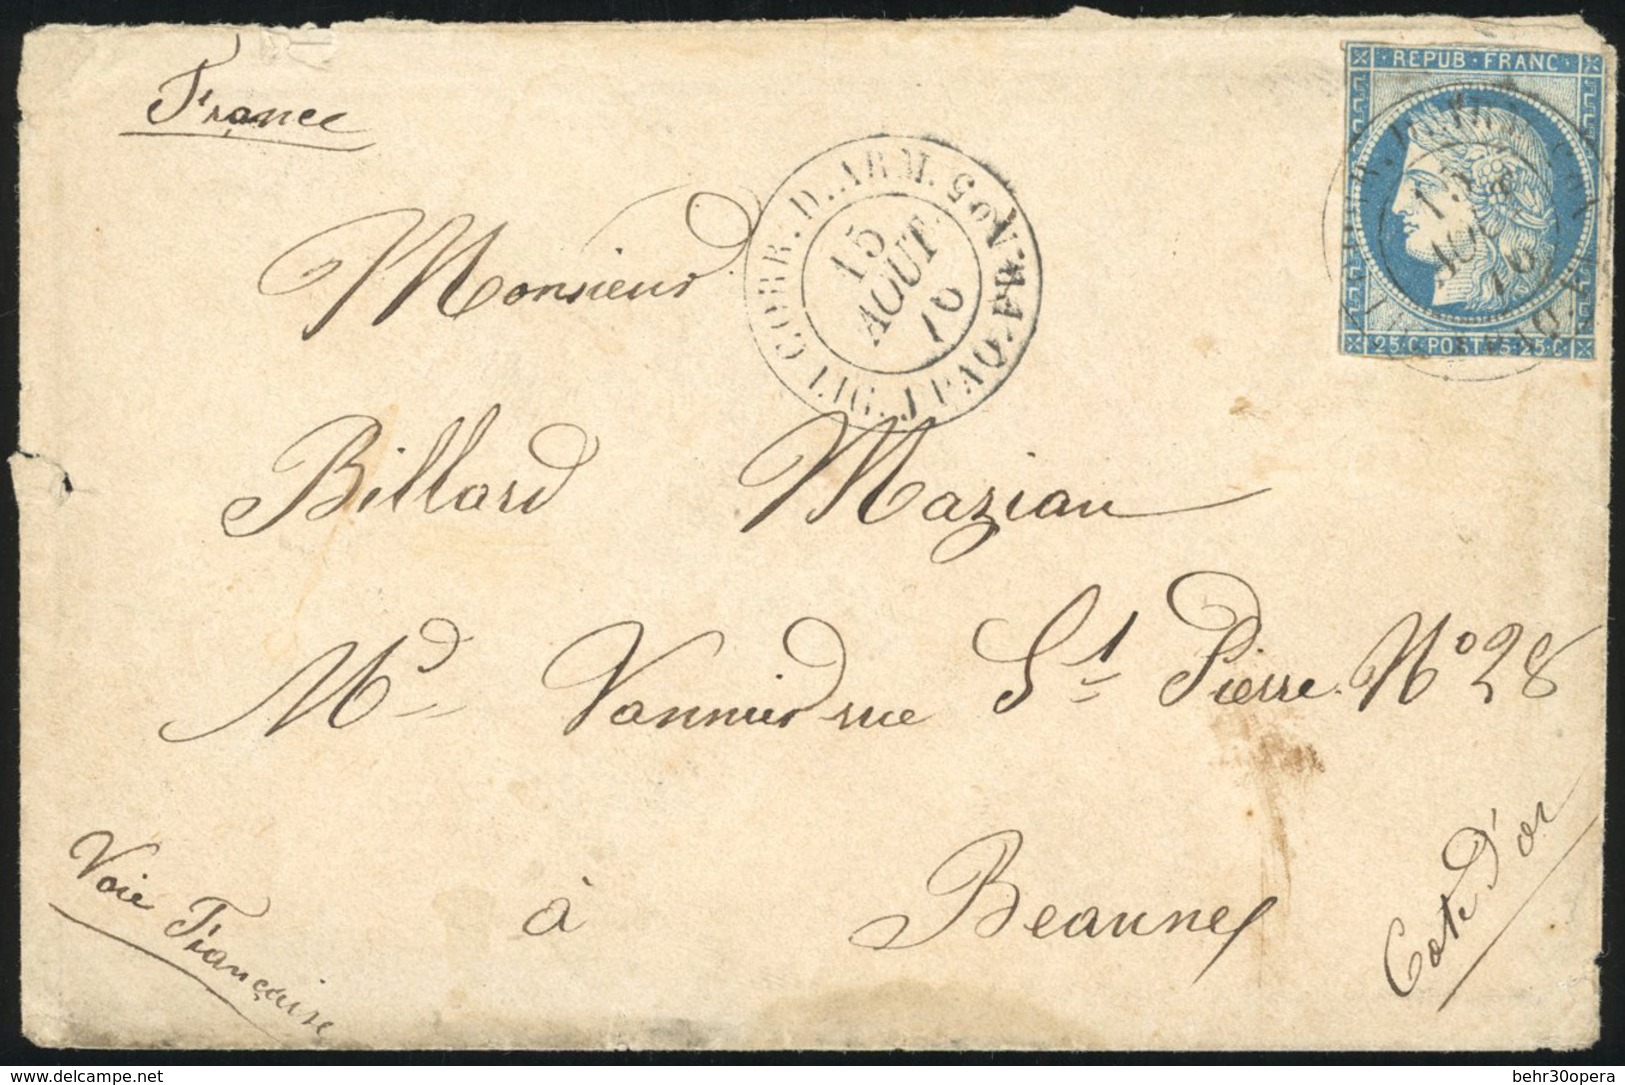 France
REPUB · FRANC
15
AOUT
76
CORR. D. ARM. LIG. J PAQ. FR. No 5
25·C·POSTES·25·C
Monsieur
Billard Mazian
Md Vannier rue St Pierre No 28
à Beaune
Cote D'or
Voie Française
www.delcampe.net
behr30opera